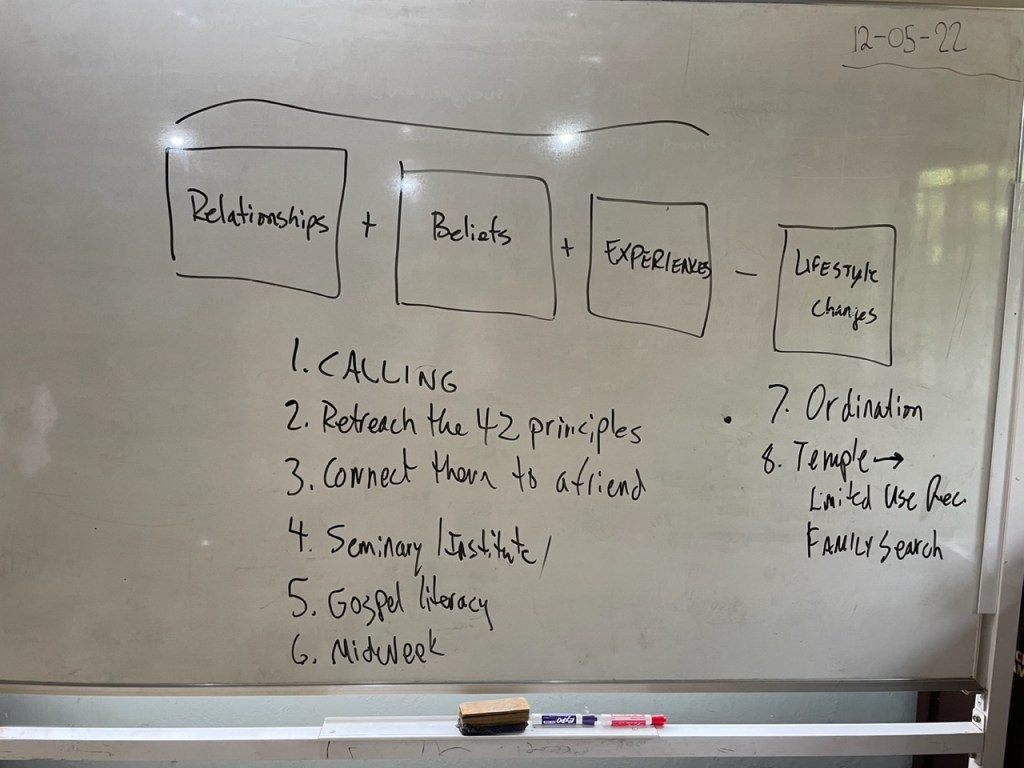 12-05-22
Relationships + Beliefs + EXPERIENCES - LIFESTYLE
Changes
1. CALLING
2. Retreach the 42 principles
3. Connect them to a friend
4. Seminary/Institute/
5. Gospel literacy
6. Midweek
7. Ordination
8. Temple →
Limited Use Rec.
FAMILY Search
EXPO